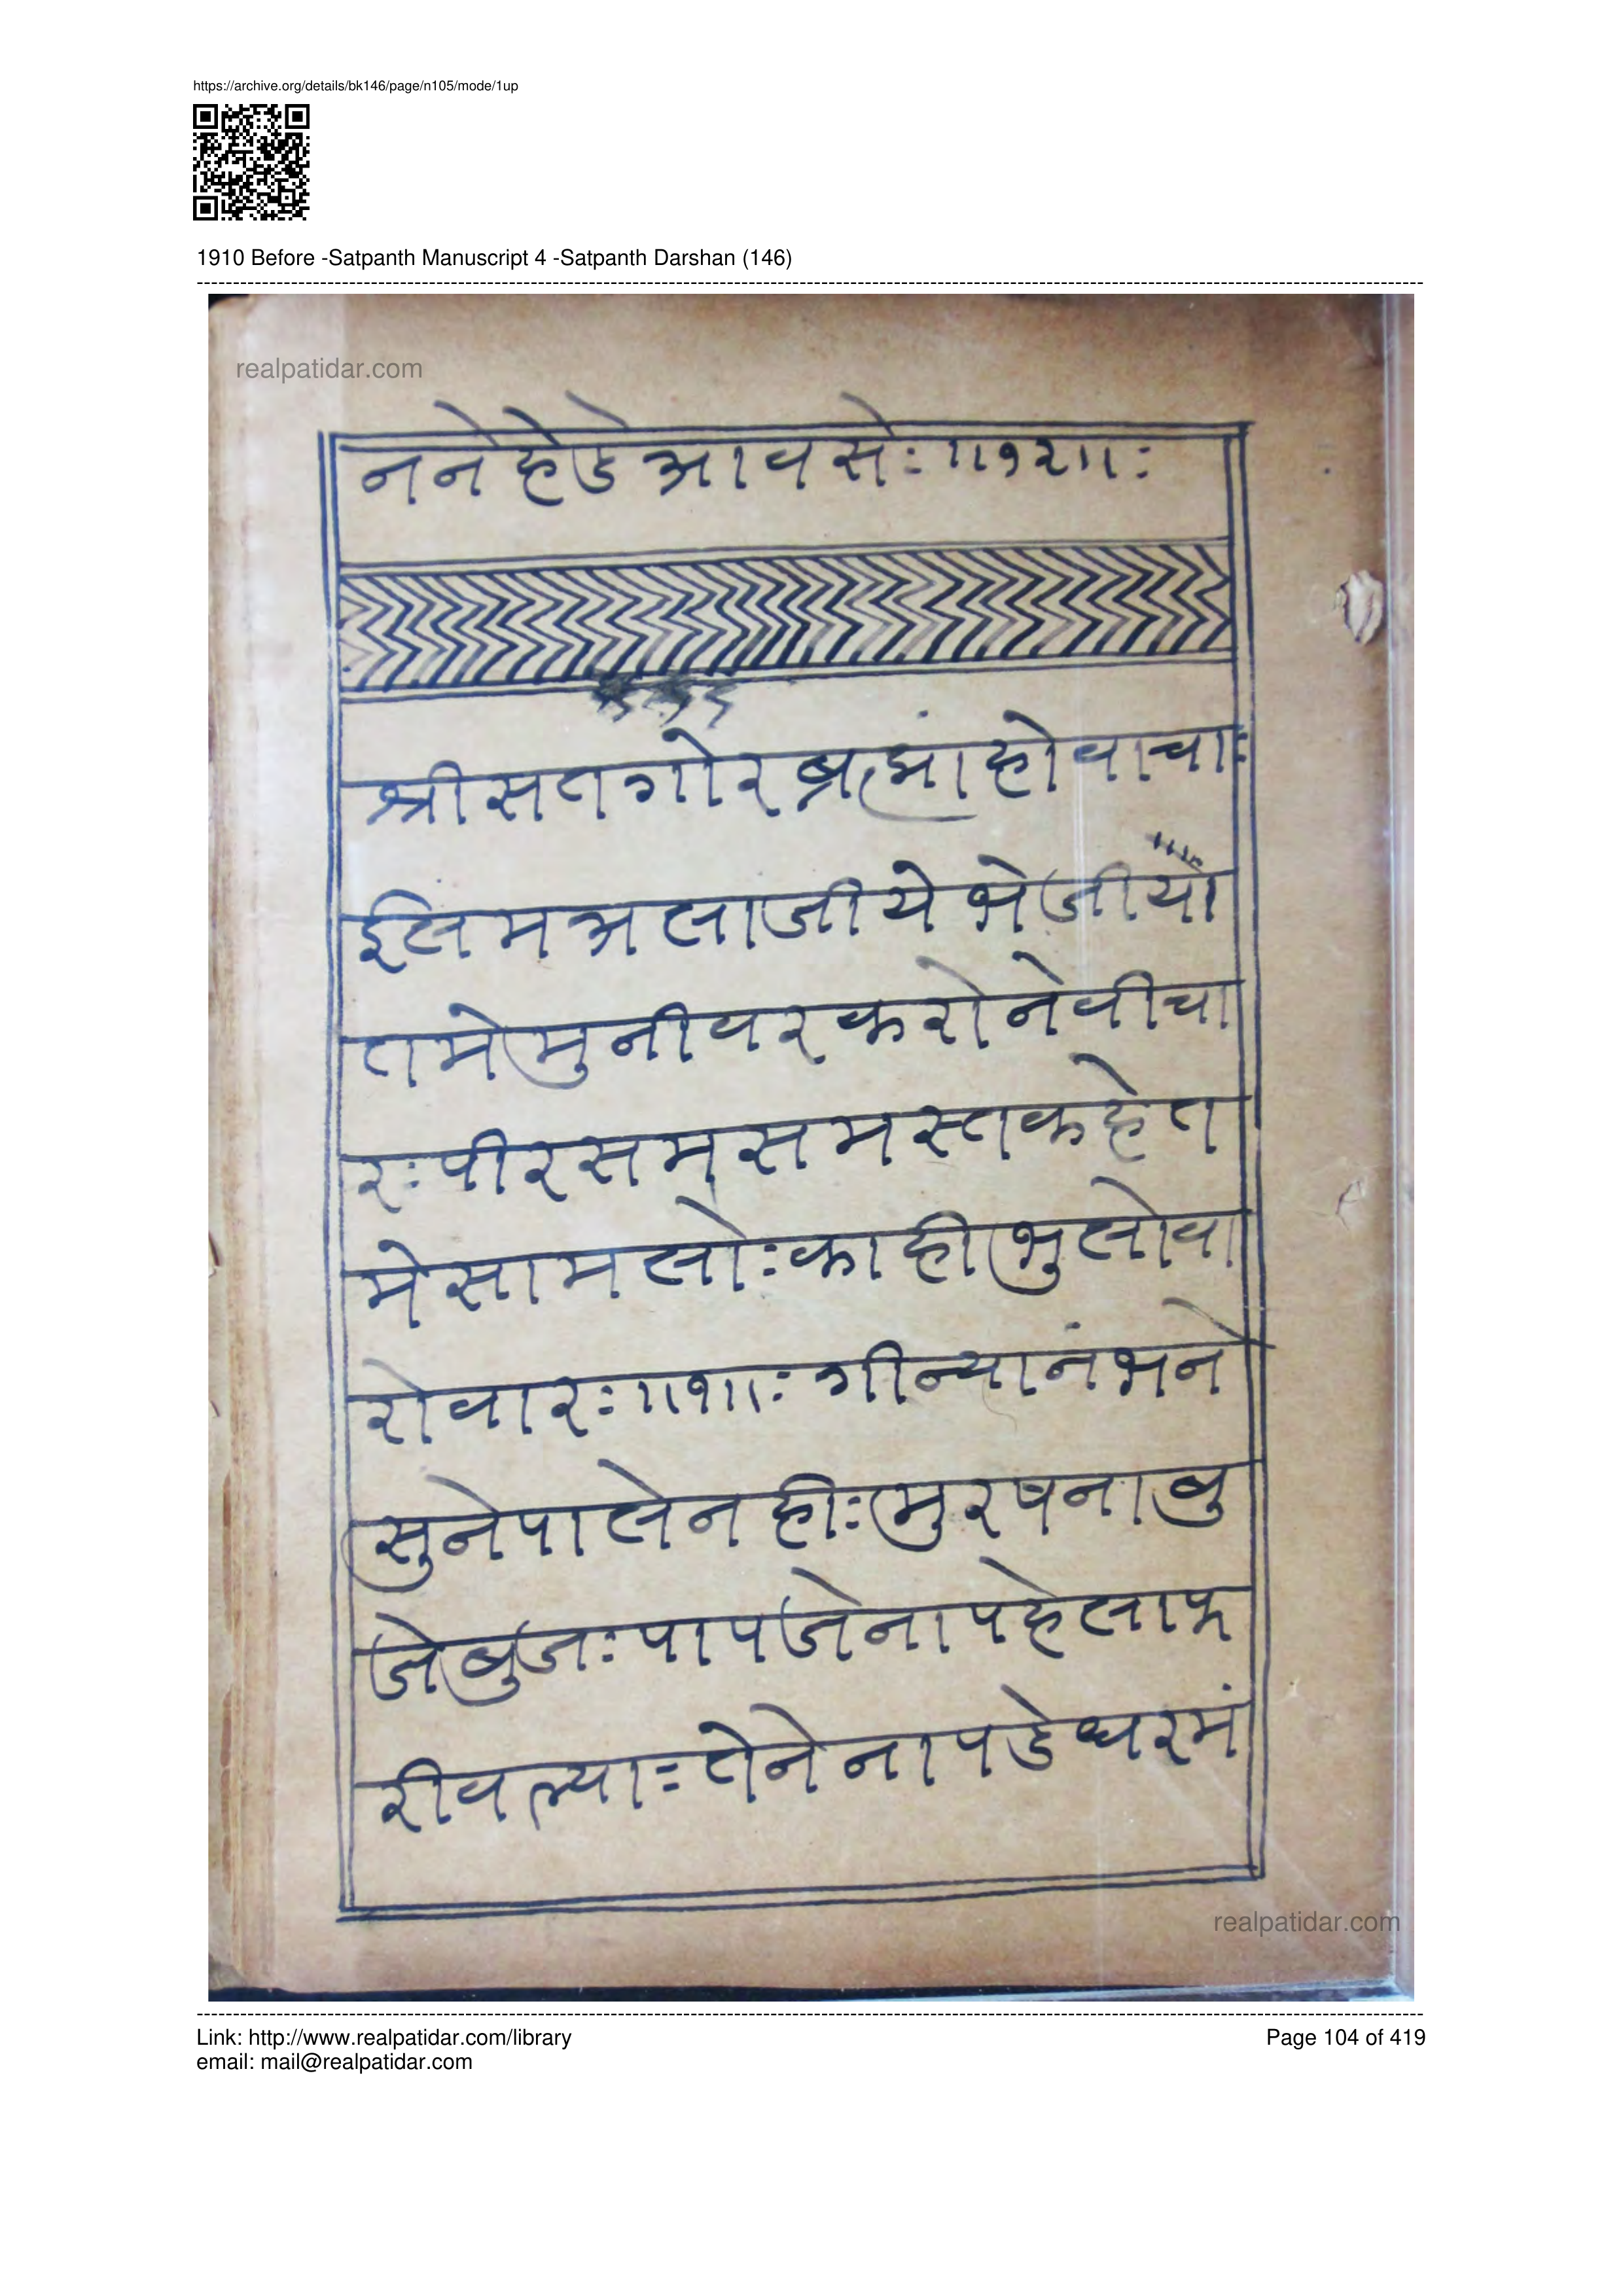 https://archive.org/details/bk146/page/n105/mode/1up
1910 Before -Satpanth Manuscript 4 -Satpanth Darshan (146)
realpatidar.com
ननेहेडेआवसेः॥१२॥ः
श्रीसतगोरब्रह्मांहोवाचाः
ईलमअलाजीयेभेजीयो
तमेमुनीवरकरोनेवीचा
रःपीरसम्ससमस्तकहेत
मेसामलोःकाहीभुलोवा
रोवारः॥१॥ः गीन्यानंभने
सुनेपालेनहीःमुरषनाबु
जेबुजःपापजेनापहेलाफ
रीवल्याःतेनेनापडेधरमं
realpatidar.com
Link: http://www.realpatidar.com/library
Page 104 of 419
email: mail@realpatidar.com